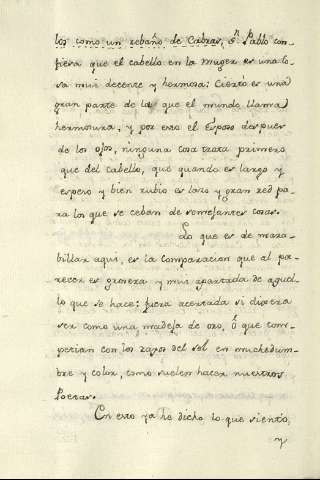 los como un rebaño de Cabras, Sn. Pablo con-
fiesa que el cabello en la muger es una co-
sa mui decente y hermosa: Cierto es una
gran parte de la que el mundo llama
hermosura, y por esto el Esposo despues
de los ojos, ninguna cosa trata primero
que del cabello, que quando es largo y
espeso y bien rubio es lazo y gran red pa-
ra los que se ceban de semejantes cosas.
Lo que es de mara-
billar aqui, es la comparacion que al pa-
recer es grosera y mui apartada de aquel-
lo que se hace: fuera acertada si dixera
ser como una madeja de oro, ó que com-
petian con los rayos del sol en muchedum-
bre y color, como suelen hacer nuestros
Poetas.
En esto ya he dicho lo que siento,
y